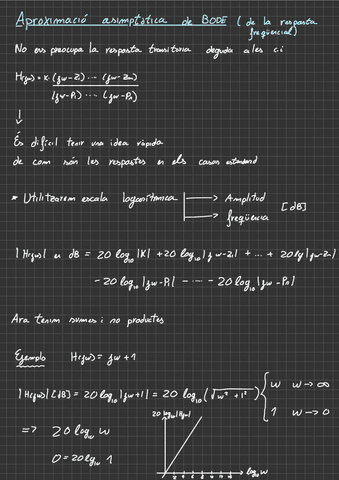 Aproximació asimptòtica de BODE (de la resposta
freqüencial)
No ens preocupa la resposta transitòria deguda a les ci
H(jw) = K · (jw-z1) ··· (jw-zm)
(jw-P1) ··· (jw-Pn)
↓
És difícil tenir una idea ràpida
de com són les respostes en els casos estandard
* Utilitzarem escala logarítmica → Amplitud
→ freqüència [dB]
|H(jw)| en dB = 20 log10 |K| + 20 log10 |jw-z1| + ... + 20 lg |jw-zm|
- 20 log10 |jw-P1| - ··· - 20 log10 |jw-Pn|
Ara tenim sumes i no productes
Ejemplo H(jw) = jw + 1
|H(jw)| [dB] = 20 log10 |jw+1| = 20 log10 (√w² + 1²) { w w → ∞
1 w → 0
=> 20 log10 w
0 = 20 log10 1
20 log10 |H(jw)|
log10 w